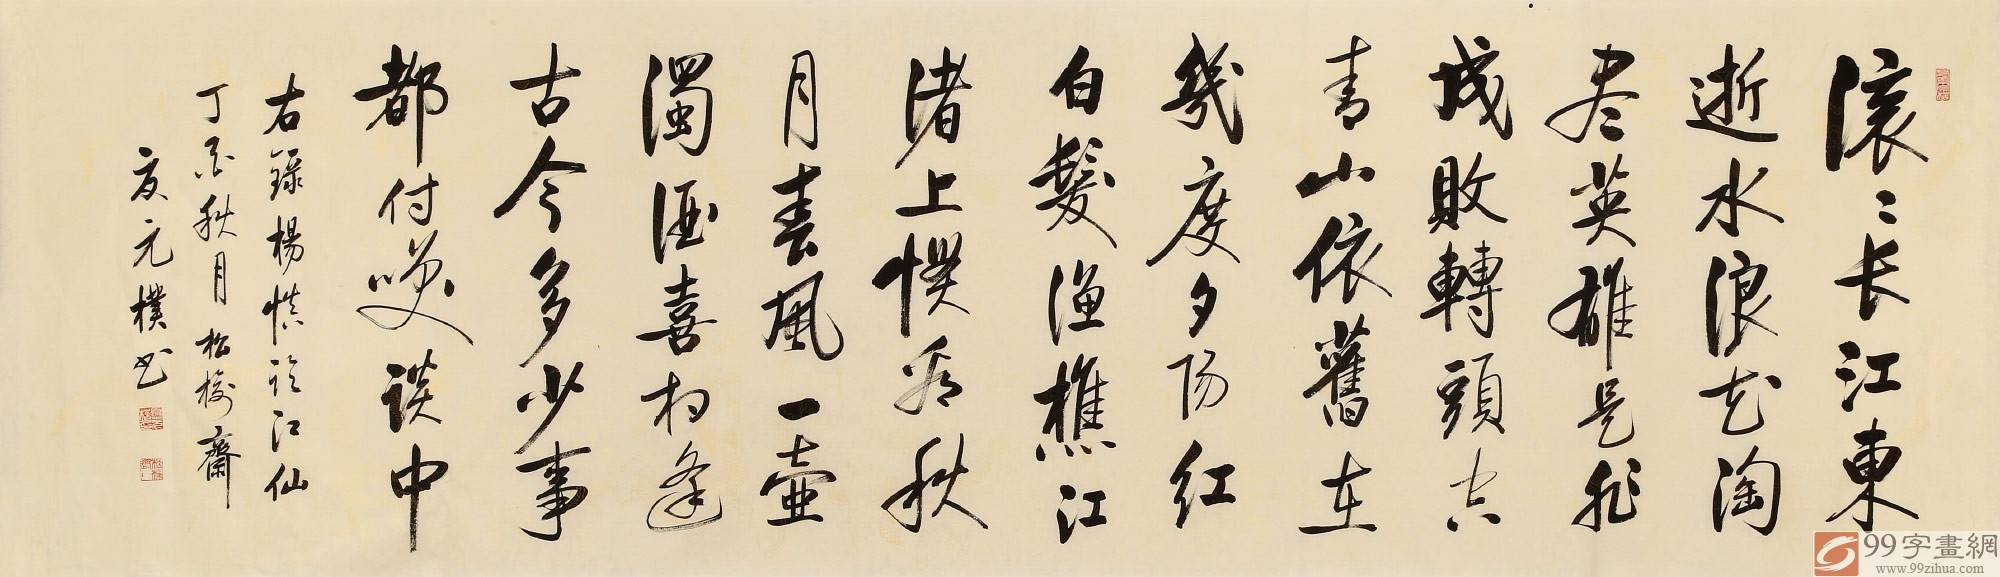 滚〻长江東
逝水浪花淘
尽英雄是非
成敗轉頭空
青山依舊在
幾度夕阳红
白髮渔樵江
渚上惯看秋
月春風一壶
濁酒喜相逢
古今多少事
都付笑谈中
右録楊慎临江仙
丁酉秋月松梅齋
夏元樸书
99字畫網
www.99zihua.com